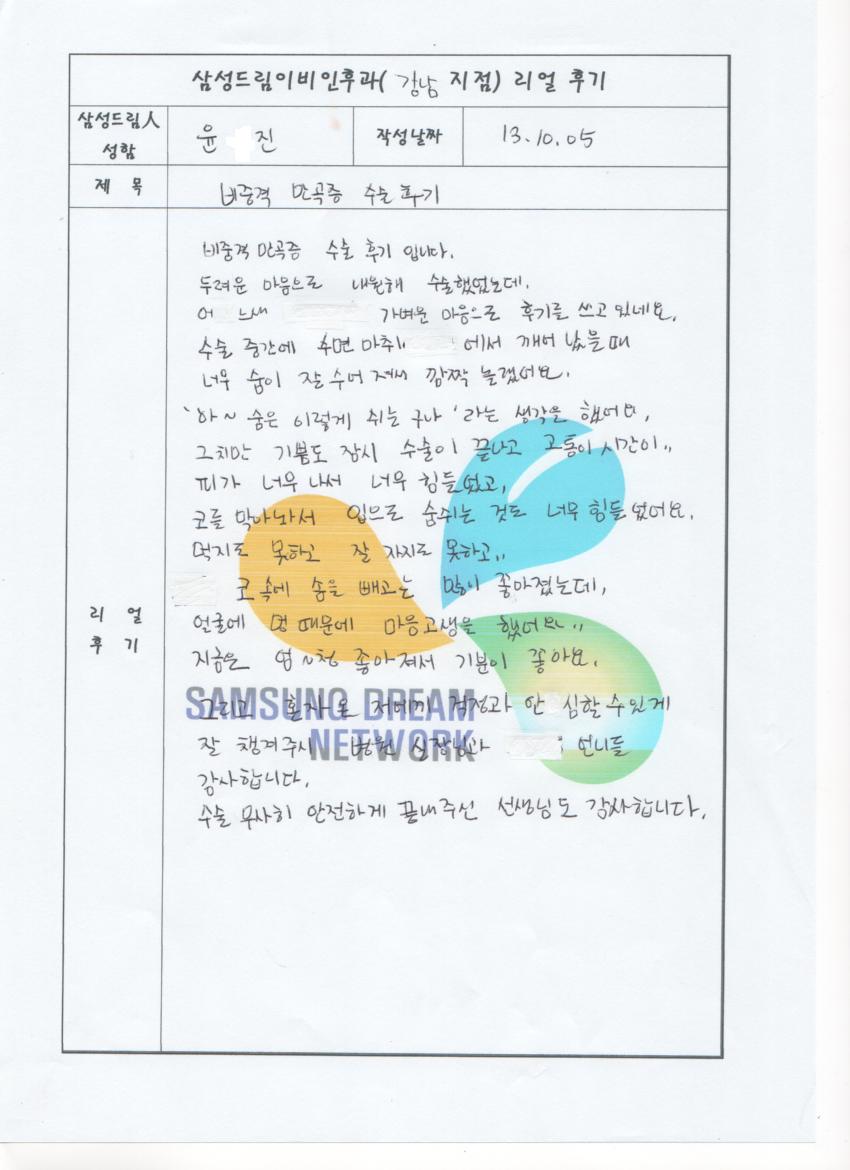 삼성드림이비인후과( 강남 지점) 리얼 후기
삼성드림人 성함
윤 진
작성날짜
13.10.05
제 목
비중격 만곡증 수술 후기
리 얼 후 기
비중격 만곡증 수술 후기 입니다.
두려운 마음으로 내원해 수술했었는데.
어 느새 가벼운 마음으로 후기를 쓰고 있네요.
수술 중간에 수면 마취 에서 깨어 났을때
너무 숨이 잘 쉬어 져서 깜짝 놀랬어요.
'아~ 숨은 이렇게 쉬는 구나 '라는 생각을 했어요.
그치만 기쁨도 잠시 수술이 끝나고 고통의 시간이..
피가 너무 나서 너무 힘들었고,
코를 막아놔서 입으로 숨쉬는 것도 너무 힘들었어요.
먹지도 못하고 잘 자지도 못하고..
코 속에 솜을 빼고는 많이 좋아졌는데,
얼굴에 멍 때문에 마음고생을 했어요..
지금은 엄~청 좋아져서 기분이 좋아요.
SAMSUNG DREAM
NETWORK
그리고 혼자 온 저에게 걱정과 안 심할 수 있게
잘 챙겨주시 병원 실장님과 언니들
감사합니다.
수술 무사히 안전하게 끝내주신 선생님도 감사합니다.